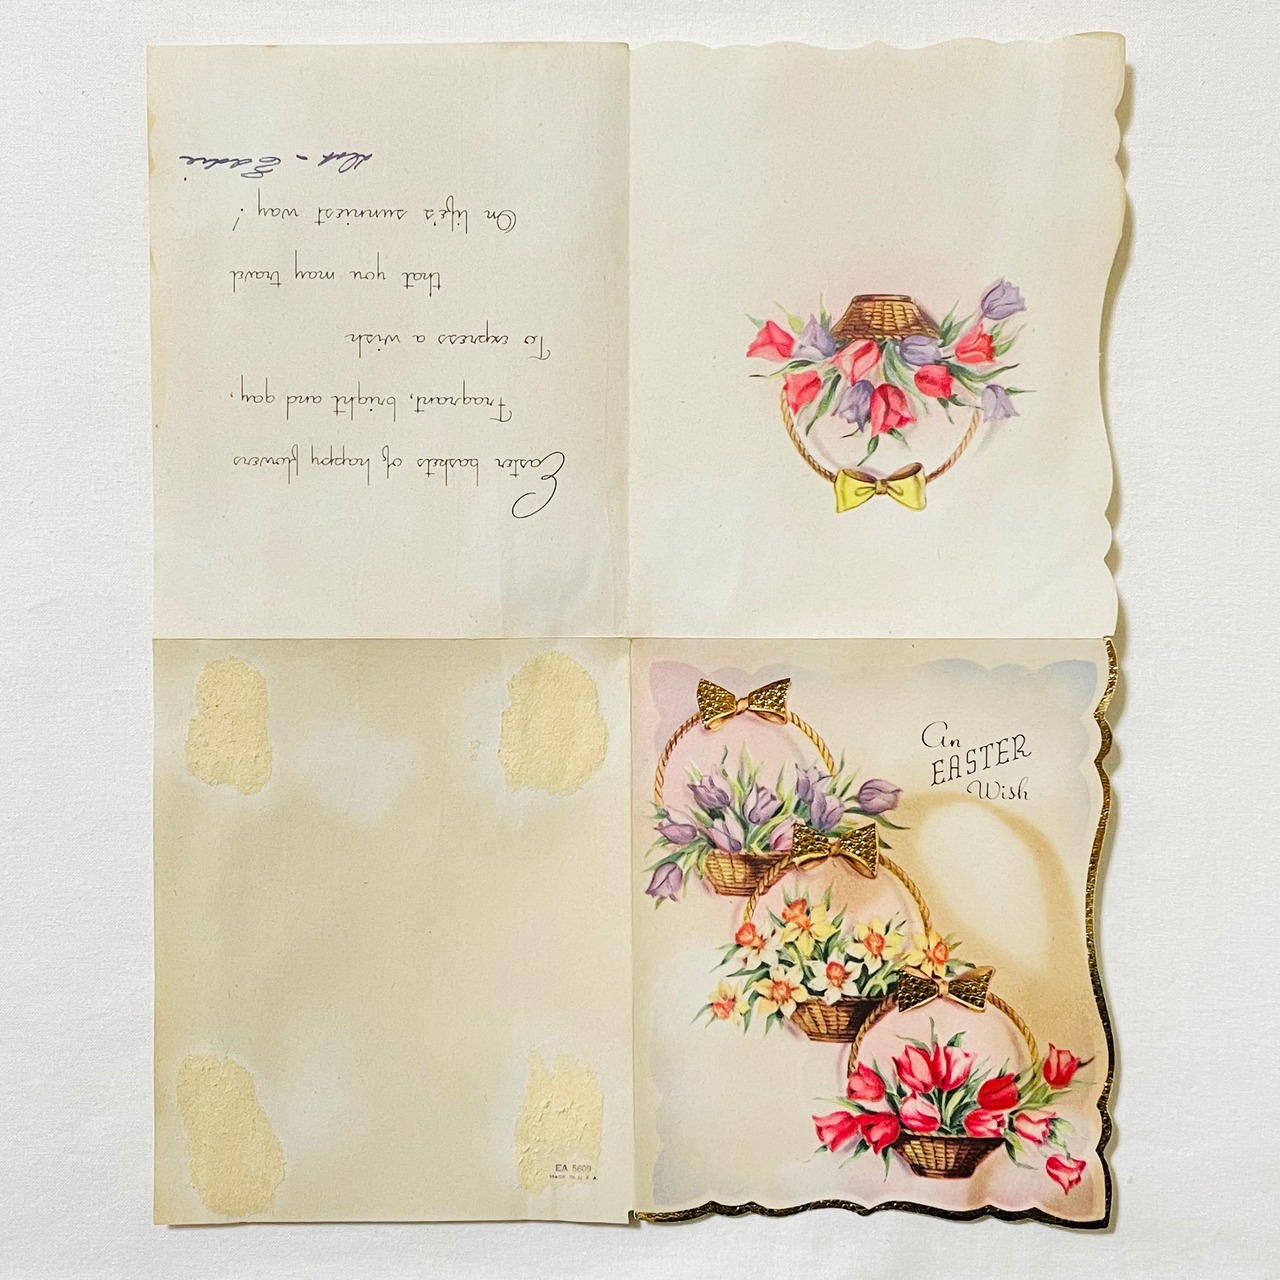 An
EASTER
Wish
Easter baskets of happy flowers
Fragrant, bright and gay,
To express a wish
that you may travel
On life's sunniest way!
- Eddie
EA 5609
MADE IN U.S.A.